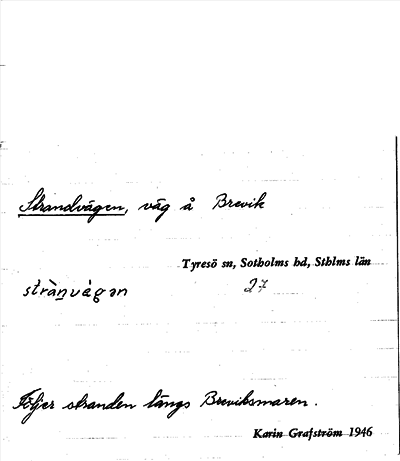 Strandvägen, väg å Brevik
Tyresö sn, Sotholms hd, Sthlms län
strànvágən 27
Följer stranden längs Breviksmaren.
Karin Grafström 1946